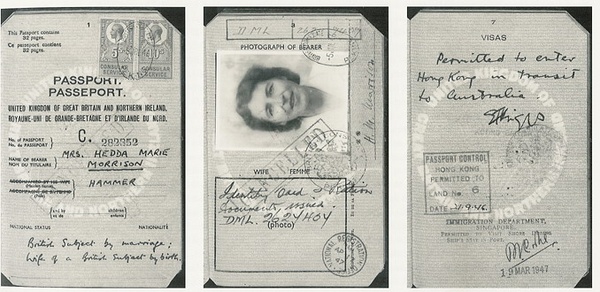 1
This Passport contains
32 pages.
Ce passeport contient
32 pages.
CONSULAR
SERVICE
CONSULAR
SERVICE
PASSPORT.
PASSEPORT.
UNITED KINGDOM OF GREAT BRITAIN AND NORTHERN IRELAND,
ROYAUME-UNI DE GRANDE-BRETAGNE ET D'IRLANDE DU NORD.
No. of PASSPORT
No. du PASSEPORT
C.
NAME OF BEARER
NOM DU TITULAIRE
MRS. HEDDA MARIE
MORRISON
HAMMER
children
enfants
NATIONAL STATUS
NATIONALITÉ
British Subject by marriage;
Wife of a British Subject by birth.
3
PHOTOGRAPH OF BEARER
WIFE FEMME
Identity Card
documents issued.
DML. 2624HOY
(photo)
NATIONAL REGISTRATION
7
VISAS
Permitted to enter
Hong Kong in transit
to Australia.
PASSPORT CONTROL
HONG KONG
PERMITTED TO
LAND No 6
DATE 21.9.46.
IMMIGRATION DEPARTMENT,
SINGAPORE.
19 MAR 1947